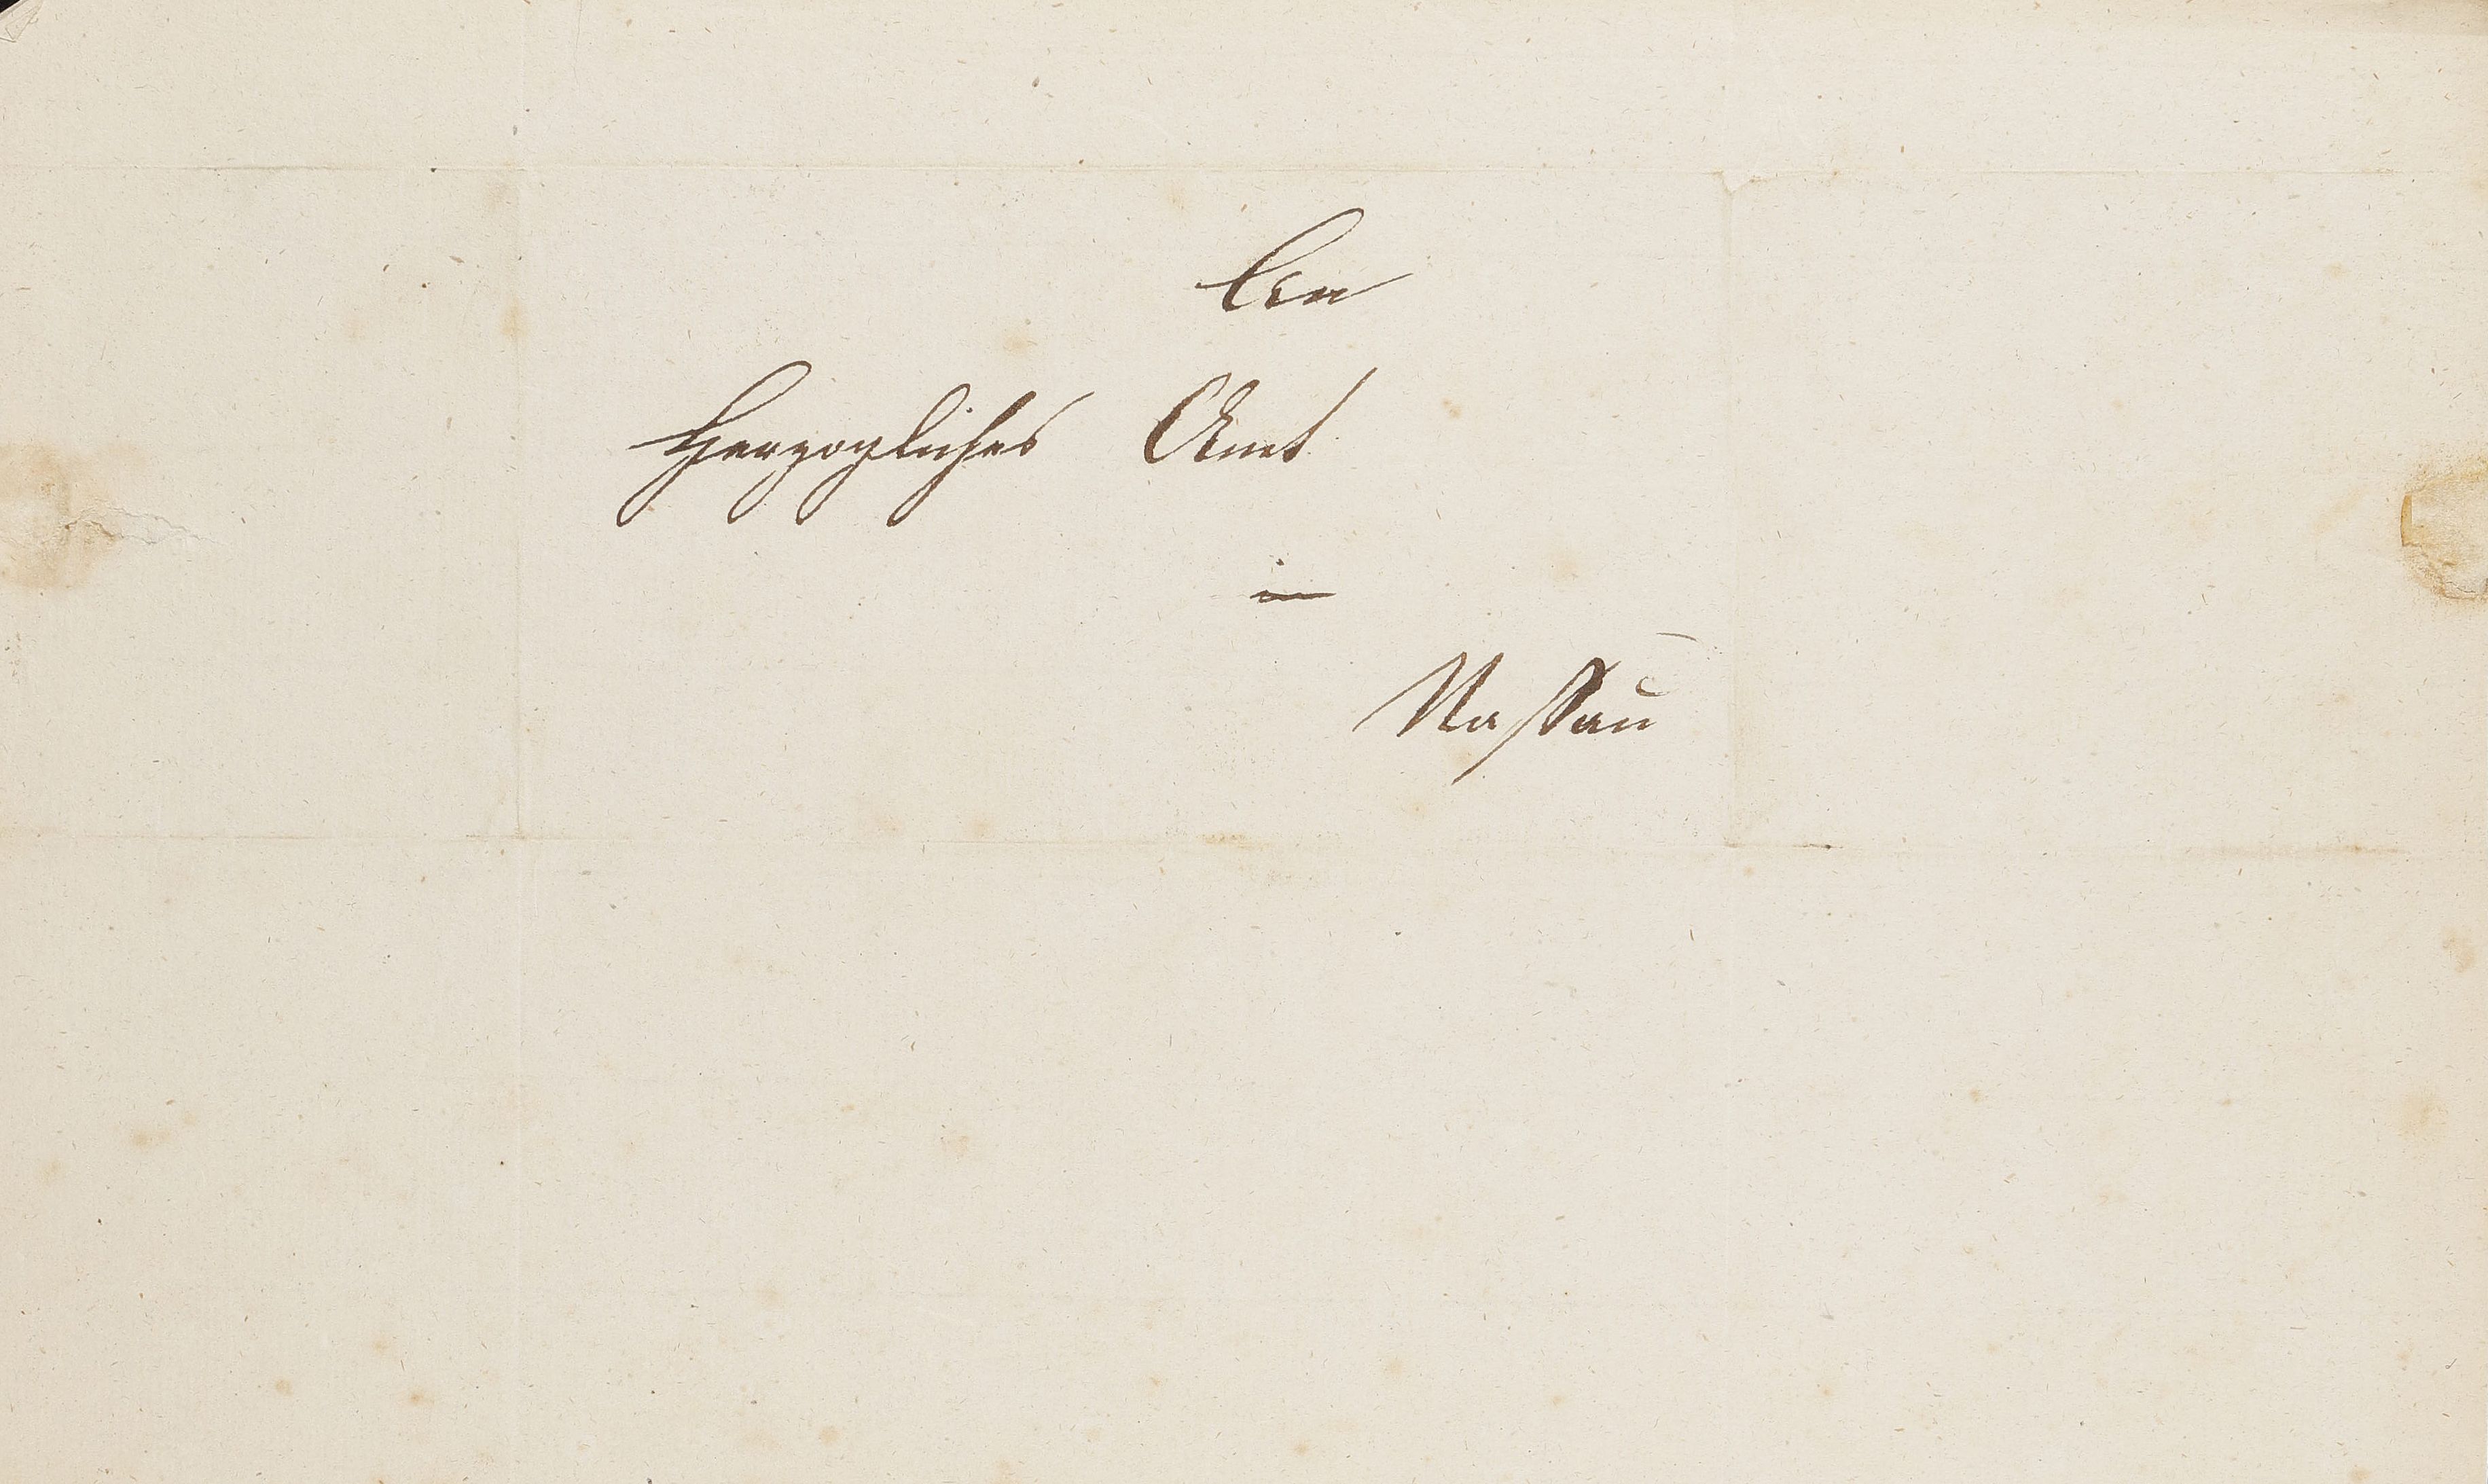 An
Herzogliches Amt
in
Nassau